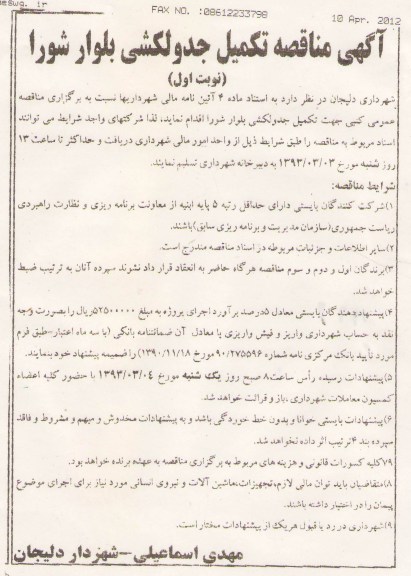 eswq. ir
FAX NO. :08612233798
18 Apr. 2012
آگهی مناقصه تکمیل جدولکشی بلوار شورا
(نوبت اول)
شهرداری دلیجان در نظر دارد به استناد ماده ۴ آئین نامه مالی شهرداریها نسبت به برگزاری مناقصه
عمومی کتبی جهت تکمیل جدولکشی بلوار شورا اقدام نماید، لذا شرکتهای واجد شرایط می توانند
اسناد مربوط به مناقصه را طبق شرایط ذیل از واحد امور مالی شهرداری دریافت و حداکثر تا ساعت ۱۳
روز شنبه مورخ ۱۳۹۳/۰۳/۰۳ به دبیرخانه شهرداری تسلیم نمایند.
شرایط مناقصه:
۱)شرکت کنندگان بایستی دارای حداقل رتبه ۵ پایه ابنیه از معاونت برنامه ریزی و نظارت راهبردی
ریاست جمهوری(سازمان مدیریت و برنامه ریزی سابق)باشند.
۲)سایر اطلاعات و جزئیات مربوطه در اسناد مناقصه مندرج است.
۳)برندگان اول و دوم و سوم مناقصه هرگاه حاضر به انعقاد قرار داد نشوند سپرده آنان به ترتیب ضبط
خواهد شد.
۴)پیشنهاد دهندگان بایستی معادل ۵درصد برآورد اجرای پروژه به مبلغ ۵۲۵۰۰۰۰۰ریال را بصورت وجه
نقد به حساب شهرداری واریز و فیش واریزی یا معادل آن ضمانتنامه بانکی (با سه ماه اعتبار-طبق فرم
مورد تأیید بانک مرکزی نامه شماره ۹۰/۲۷۵۵۹۶ مورخ ۱۳۹۰/۱۱/۱۸) را ضمیمه پیشنهاد خود بنمایند.
۵)پیشنهادات رسیده رأس ساعت۸ صبح روز یک شنبه مورخ ۱۳۹۳/۰۳/۰۴ با حضور کلیه اعضاء
کمسیون معاملات شهرداری ،باز و قرائت خواهد شد.
۶)پیشنهادات بایستی خوانا و بدون خط خوردگی باشد و به پیشنهادات مخدوش و مبهم و مشروط و فاقد
سپرده بند ۴ترتیب اثر داده نخواهد شد.
۷)کلیه کسورات قانونی و هزینه های مربوط به برگزاری مناقصه به عهده برنده خواهد بود.
۸)متقاضیان باید توان مالی لازم،تجهیزات،ماشین آلات و نیروی انسانی مورد نیاز برای اجرای موضوع
پیمان را در اختیار داشته باشند.
۹)شهرداری در رد یا قبول هریک از پیشنهادات مختار است.
مهدی اسماعیلی-شهردار دلیجان